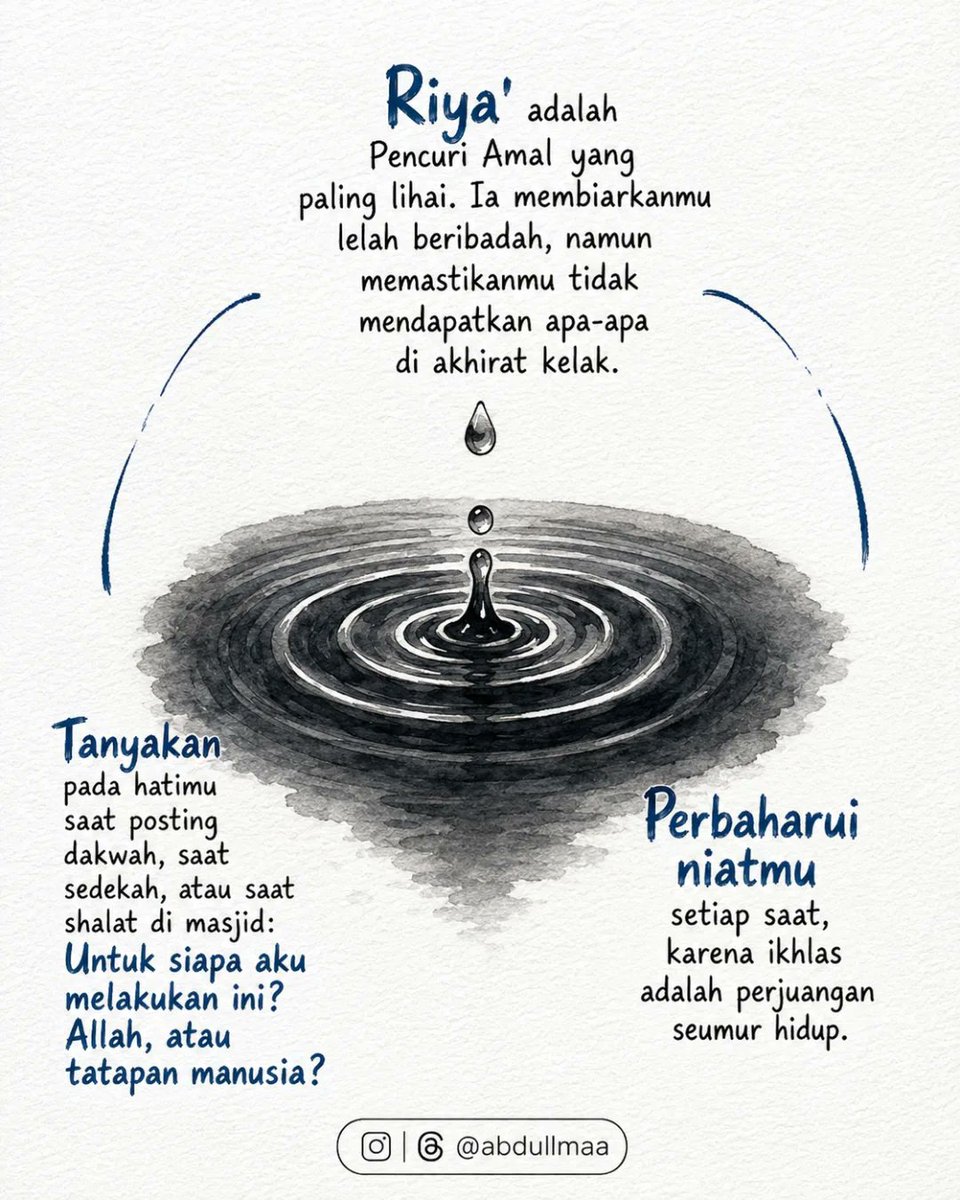 Riya' adalah
Pencuri Amal yang
paling lihai. Ia membiarkanmu
lelah beribadah, namun
memastikanmu tidak
mendapatkan apa-apa
di akhirat kelak.
Tanyakan
pada hatimu
saat posting
dakwah, saat
sedekah, atau saat
shalat di masjid:
Untuk siapa aku
melakukan ini?
Allah, atau
tatapan manusia?
Perbaharui
niatmu
setiap saat,
karena ikhlas
adalah perjuangan
seumur hidup.
@abdullmaa